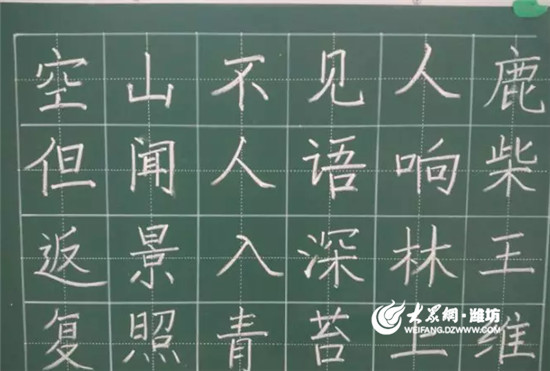 空山不见人鹿
但闻人语响柴
返景入深林王
复照青苔上维
大众网·潍坊
WEIFANG.DZWWW.COM